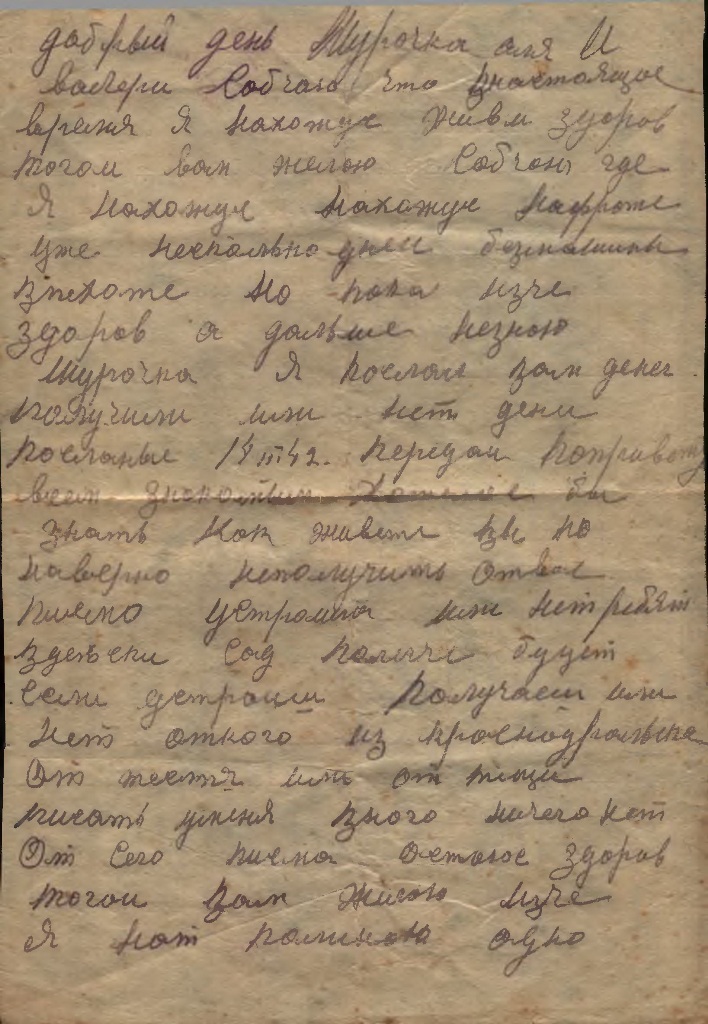 добрый день Шурочка аля И
вачери Собчаю что внастоящое
время я нахожус живм здоров
тогом вам желою Собчою где
Я нахожус нахожус нафроте
уже несколько дней
впехоте но пока изче
здоров а дальше незною
Шурочка я послал вам денег
получили или нет денги
посланые 14 III 42. передай поправету
всем знакомым хотелос бы
знать как живете вы но
наверно неполучить отвас
писмо устроила или нет ребят
вдецски сад полычи будет
если устроиш получаеш или
нет откого из красноуральска
От тестя или от тещи
писать уменя вного ничего нет
От сего писма остаюс здоров
тогои вам жилою изче
Я нот одно